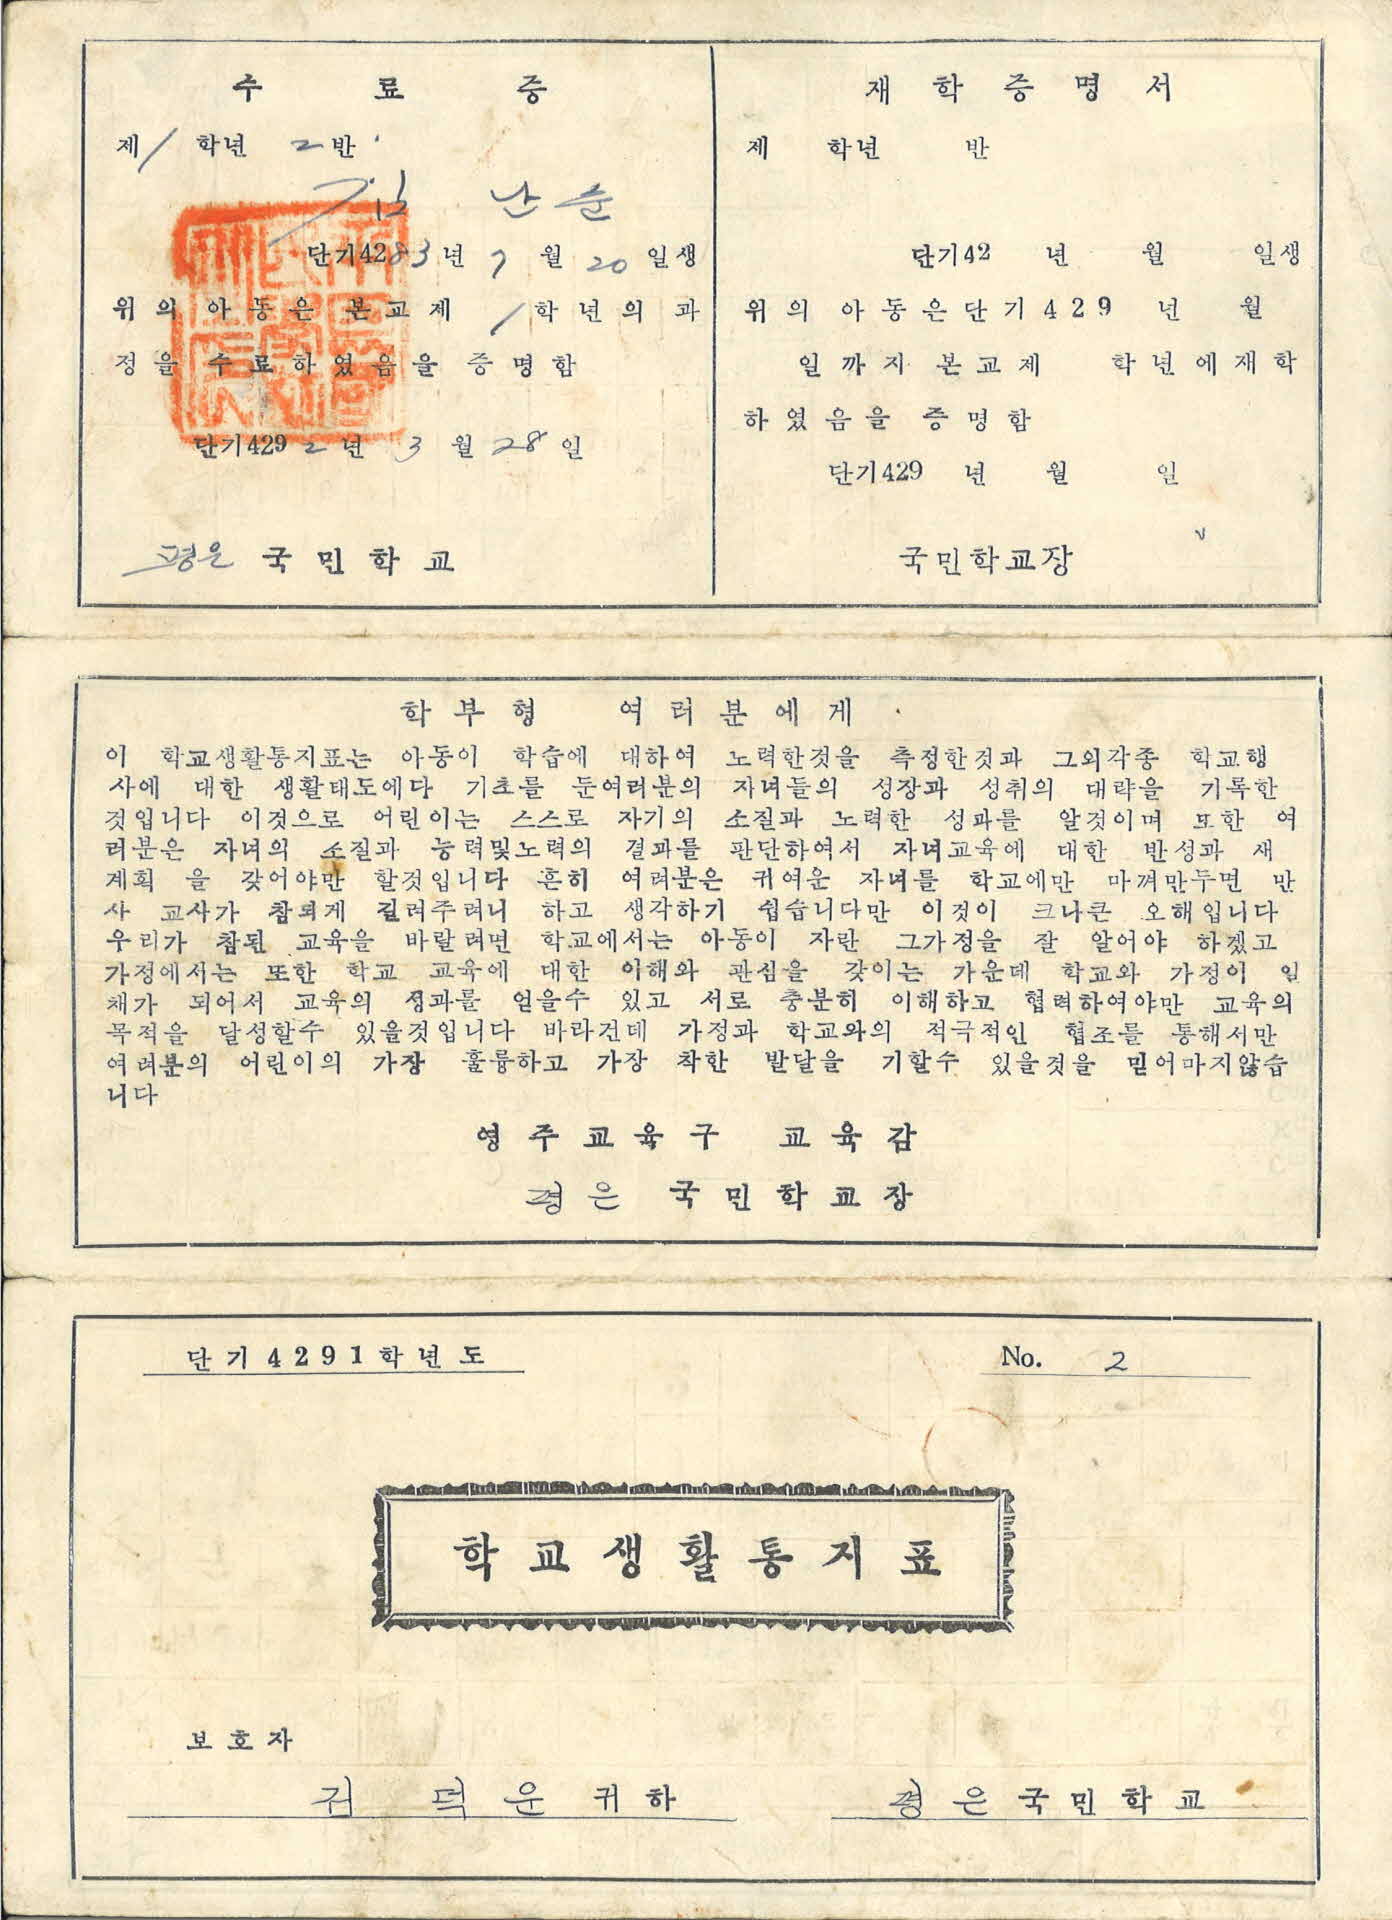 수료증
제 1 학년 2 반
김 난순
단기4283년 7월 20일생
위의 아동은 본교제 1 학년의 과
정을 수료하였음을 증명함
단기4292년 3월 28일
평은 국민학교
재학증명서
제 학년 반
단기42 년 월 일생
위의 아동은단기429 년 월
일까지 본교제 학년에재학
하였음을 증명함
단기429 년 월 일
국민학교장
학부형 여러분에게
이 학교생활통지표는 아동이 학습에 대하여 노력한것을 측정한것과 그외각종 학교행
사에 대한 생활태도에다 기초를 둔여러분의 자녀들의 성장과 성취의 대략을 기록한
것입니다 이것으로 어린이는 스스로 자기의 소질과 노력한 성과를 알것이며 또한 여
러분은 자녀의 소질과 능력및노력의 결과를 판단하여서 자녀교육에 대한 반성과 새
계획 을 갖어야만 할것입니다 흔히 여러분은 귀여운 자녀를 학교에만 마껴만두면 만
사 교사가 참되게 길러주려니 하고 생각하기 쉽습니다만 이것이 크나큰 오해입니다
우리가 참된 교육을 바랄려면 학교에서는 아동이 자란 그가정을 잘 알어야 하겠고
가정에서는 또한 학교 교육에 대한 이해와 관심을 갖이는 가운데 학교와 가정이 일
채가 되어서 교육의 성과를 얻을수 있고 서로 충분히 이해하고 협력하여야만 교육의
목적을 달성할수 있을것입니다 바라건데 가정과 학교와의 적극적인 협조를 통해서만
여러분의 어린이의 가장 훌륭하고 가장 착한 발달을 기할수 있을것을 믿어마지않습
니다
영주교육구 교육감
평은 국민학교장
단기4291학년도
No. 2
학교생활통지표
보호자
김 덕운 귀하
평은국민학교